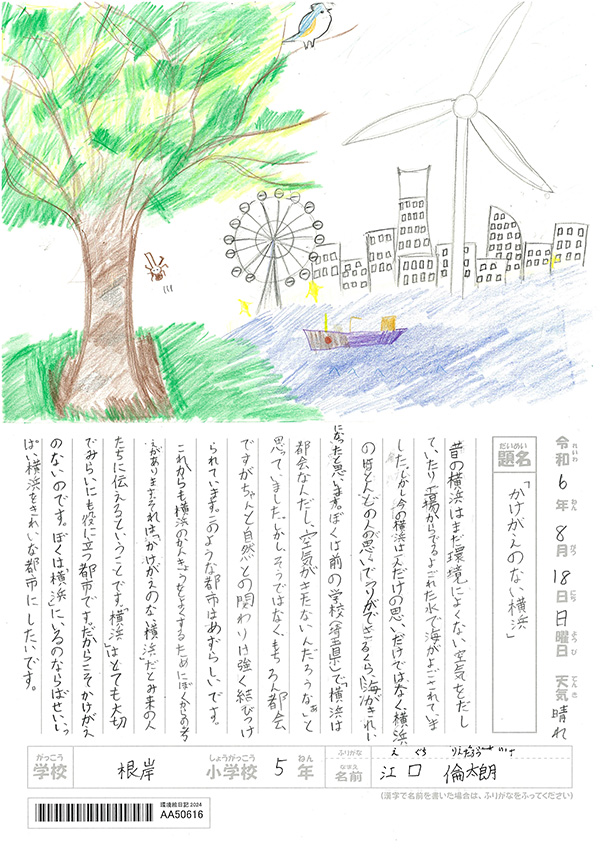 令和6年8月18日日曜日 天気 晴れ
れいわ ねん がつ にち ようび てんき
だいめい
題名
「かけがえのない横浜」
昔の横浜はまだ環境によくない空気をだし
ていたり工場からでるよごれた水で海がよごされていま
した。しかし今の横浜は一人だけの思いだけではなく、横浜
のほとんどの人の思いで
になったと思います。ぼくは前の学校(埼玉県)で「横浜は
都会なんだし、空気がきたないんだろうなぁ」と
思っていました。しかし、そうではなく、もちろん都会
ですがちゃんと自然との関わりは強く結びつけ
られています。このような都市はめずらしいです。
これからも横浜のかんきょうをよくするためにぼくからの考
えがあります。それは「かけがえのない横浜」だとみ来の人
たちに伝えるということです。「横浜」はとても大切
でみらいにも役に立つ都市です。だからこそかけがえ
のないのです。ぼくは「横浜」に、いるのならばせいいっ
ぱい横浜をきれいな都市にしたいです。
がっこう しょうがっこう ねん ふりがな えぐち りんたろう
学校 根岸 小学校 5年 なまえ 名前 江口 倫太朗
(漢字で名前を書いた場合は、ふりがなをふってください)
環境絵日記2024
AA50616